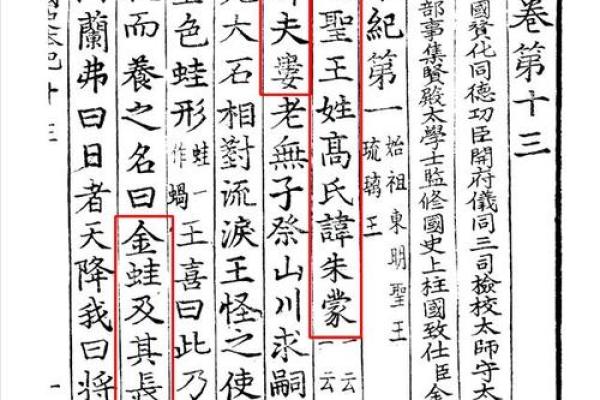 卷第十三
國贊化同德功臣開府儀同三司檢校太師守太
部事集賢殿太學士監修國史上柱國致仕臣金
紀第一
始祖東明聖王
琉璃王
聖王姓髙氏諱朱蒙一云一云
夫婁老無子祭山川求嗣
大石相對流淚王怪之使
色蛙形蛙一作蝸王喜曰此乃
而養之名曰金蛙及其長
蘭弗曰日者天降我曰將